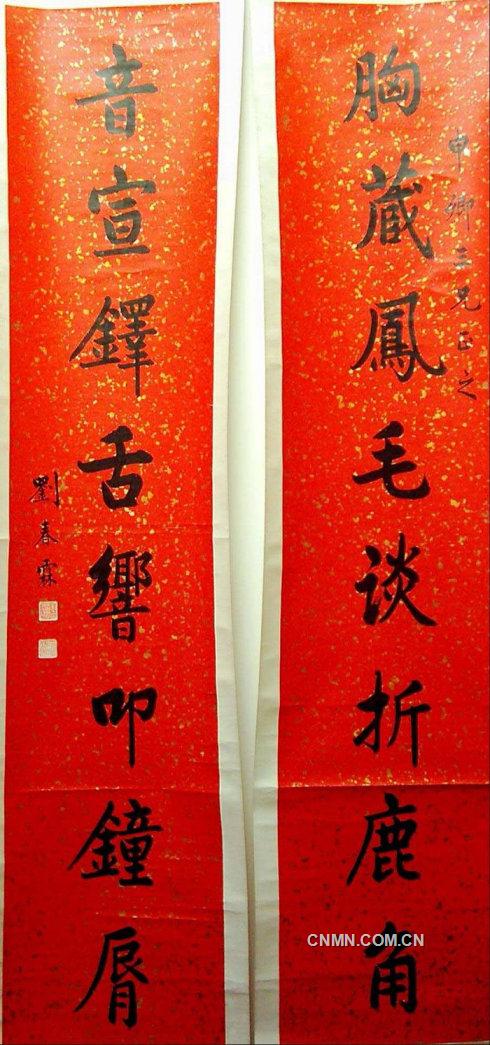 申卿三兄正之
胸藏鳳毛谈折鹿角
音宣鐸舌響叩鐘脣
劉春霖
CNMN.COM.CN